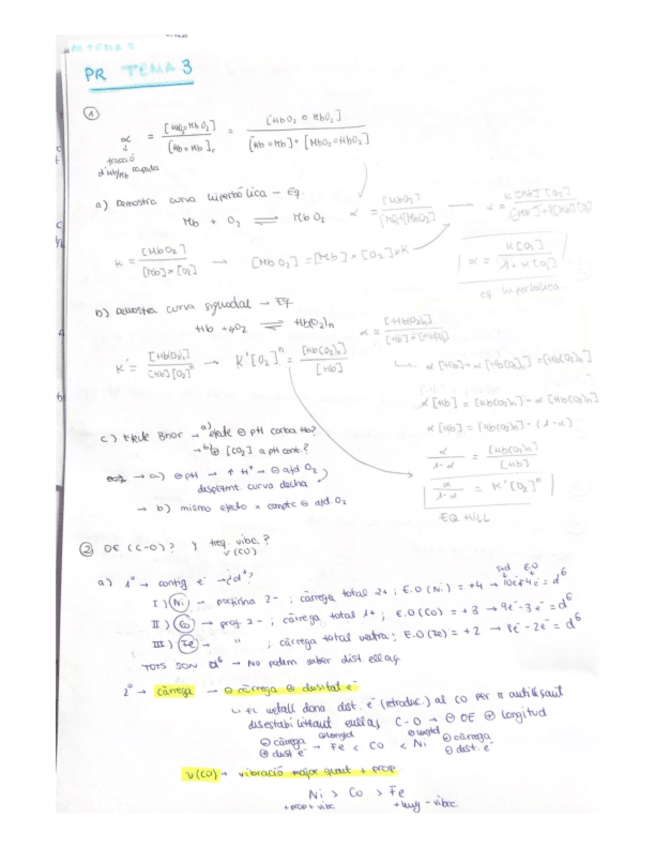 PR TEMA 3
①
α = [HbO₂ o MbO₂] / [Hb o Mb]ₜ = [HbO₂ o MbO₂] / [Hb o Mb] + [MbO₂ o HbO₂]
↓
fracció
d'Hb/Mb ocupada
a) Demostra curva hiperbólica → Eq.
Mb + O₂ ⇌ MbO₂
K = [MbO₂] / [Mb]×[O₂] → [MbO₂] = [Mb]×[O₂]×K
α = K[O₂] / 1 + K[O₂]
eq. hiperbólica
b) Demostra curva sigmodal → Eq.
Hb + 4O₂ ⇌ Hb(O₂)n
K' = [Hb(O₂)n] / [Hb][O₂]ⁿ → K'[O₂]ⁿ = [Hb(O₂)n] / [Hb]
α[Hb] + α[Hb(O₂)n] = [Hb(O₂)n]
α[Hb] = [Hb(O₂)n] - α[Hb(O₂)n]
α[Hb] = [Hb(O₂)n] · (1-α)
α / 1-α = [Hb(O₂)n] / [Hb]
α / 1-α = K'[O₂]ⁿ
EQ HILL
c) Efecte Bhor → a) efecte ⊖ pH corba Hb?
→ b) ⊕ [CO₂] a pH cont.?
→ a) ⊖ pH → ↑ H⁺ → ⊖ afd O₂
desplzmt. curva dcha
→ b) mismo efecto × compte ⊖ afd. O₂
② OE (C-O)? y freq. vibr.?
ν(CO)
a) 1º → config e⁻ → ¿dⁿ?
I) Ni → porfirina 2- ; càrrega total 2+ ; E.O (Ni) = +4 → 10e⁻-4e⁻ = d⁶
II) Co → porf. 2- ; càrrega total 1+ ; E.O (Co) = +3 → 9e⁻-3e⁻ = d⁶
III) Fe → " ; càrrega total neutra ; E.O (Fe) = +2 → 8e⁻-2e⁻ = d⁶
TOTS SON d⁶ → No podem saber dist. enllaç.
2º → càrrega → ⊖ càrrega ⊕ dusital e⁻
↳ El metall dona dst. e⁻ (retrodoc.) al CO per π antienllaçant
disestabilitzant enllaç C-O → ⊖ OE ⊕ longitud
⊖ càrrega ⊕ longitud ⊖ longtd ⊕ càrrega
⊕ dnst e⁻ → Fe < Co < Ni ⊖ dnst. e⁻
ν(CO) → vibració major quant + prop
Ni > Co > Fe
+ prop + vibr. + lluny - vibr.